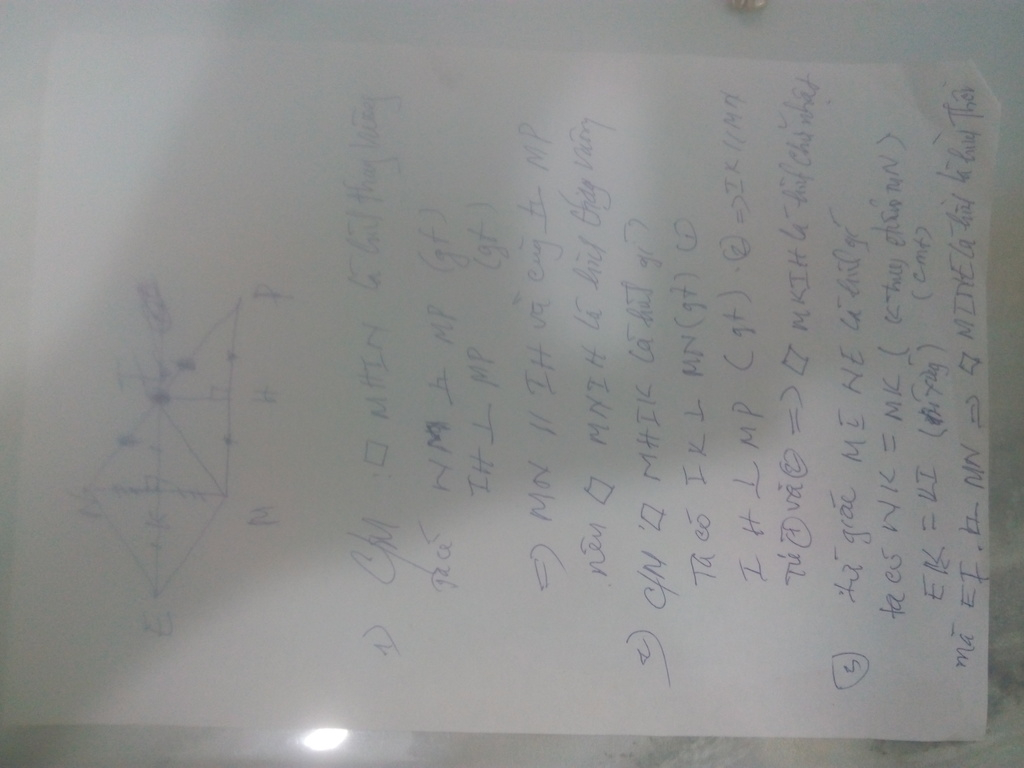 N
E K I
M H P
1) C/M □ MHIN là hình thang vuông
Ta có NM ⊥ MP (gt)
IH ⊥ MP (gt)
=> MN // IH và cùng ⊥ MP
nên □ MNIH là hình thang vuông
2) C/M □ MHIK là hình gì
Ta có IK ⊥ MN (gt) ①
IH ⊥ MP (gt) ② => IK // MH
Từ ① và ② => □ MKIH là hình chữ nhật
③ tứ giác MINE là hình gì
ta có NK = MK (K trung điểm MN)
EK = KI (cmt)
mà EI ⊥ MN => □ MINE là hình thoi